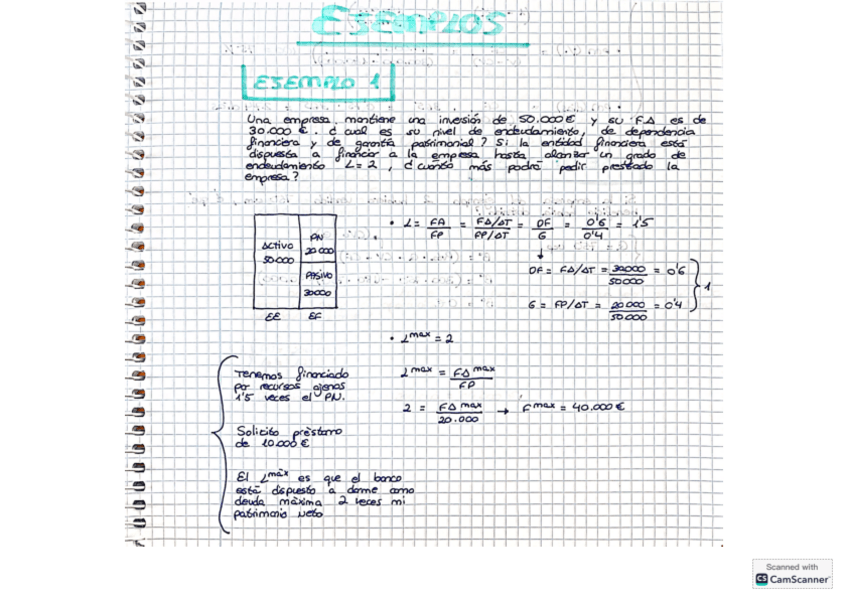 EJEMPLOS
EJEMPLO 1
Una empresa mantiene una inversión de 50.000€ y su FA es de
30.000 €. ¿ cual es su nivel de endeudamiento, de dependencia
financiera y de garantía patrimonial? Si la entidad financiera está
dispuesta a financiar a la empresa hasta alcanzar un grado de
endeudamiento L=2, ¿cuánto más podrá pedir prestado la
empresa?
Activo
50.000
PN
20.000
PASIVO
30000
EE EF
• L = FA/FP = FA/AT / FP/AT = DF/G = 0'6/0'4 = 1'5
DF = FA/AT = 30000/50000 = 0'6
G = FP/AT = 20000/50.000 = 0'4
1
• Lmax = 2
Lmax = FAmax/FP
2 = FAmax/20.000 → Fmax = 40.000 €
Tenemos financiado
por recursos ajenos
1'5 veces el PN.
Solicito préstamo
de 10.000 €
El Lmáx es que el banco
está dispuesto a darme como
deuda máxima 2 veces mi
patrimonio neto
Scanned with
CS CamScanner